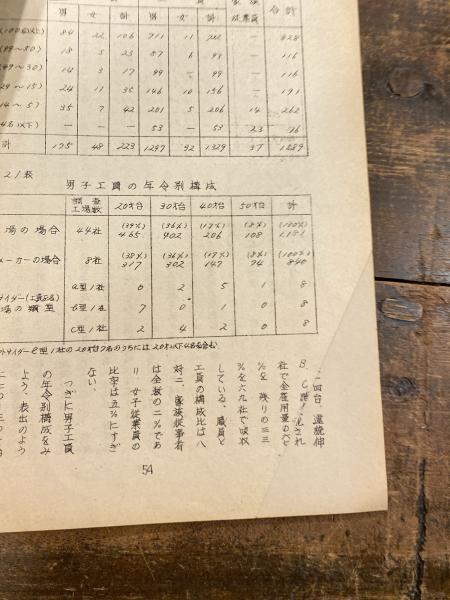 家族従業員 合計
男 女 計 男 女 計
(100名以上) 84 22 106 711 11 722 — 828
(99〜50) 18 5 23 87 6 93 — 116
(49〜30) 14 3 17 99 — 99 — 116
(29〜15) 24 11 35 146 10 156 — 191
(14〜5) 35 7 42 201 5 206 14 262
(4名以下) — — — 53 — 53 23 76
計 175 48 223 1297 32 1329 37 1589
21表
男子工員の年令別構成
調査工場数 20才台 30才台 40才台 50才台 計
場の場合 44社 (39%) 465 (36%) 402 (17%) 206 (8%) 108 (100%) 1,181
メーカーの場合 8社 (38%) 317 (36%) 302 (17%) 147 (8%) 74 (100%) 840
a型1社 0 2 5 1 8
b型1社 7 0 1 0 8
C型1社 2 4 2 0 8
社で全雇用量の六七
%を、残りの三三
%を六九社で吸収
している。職員と
工員の構成比は八
対二、家族従事者
は全数の二%であ
り、女子従業員の
比率は五%にすぎ
ない。
つぎに男子工員
の年令別構成をみ
よう。表出のよう
54